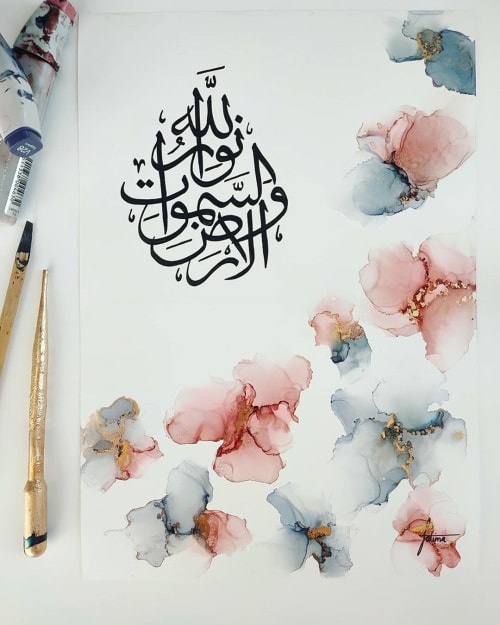 الله نور السموات والارض
Fatima